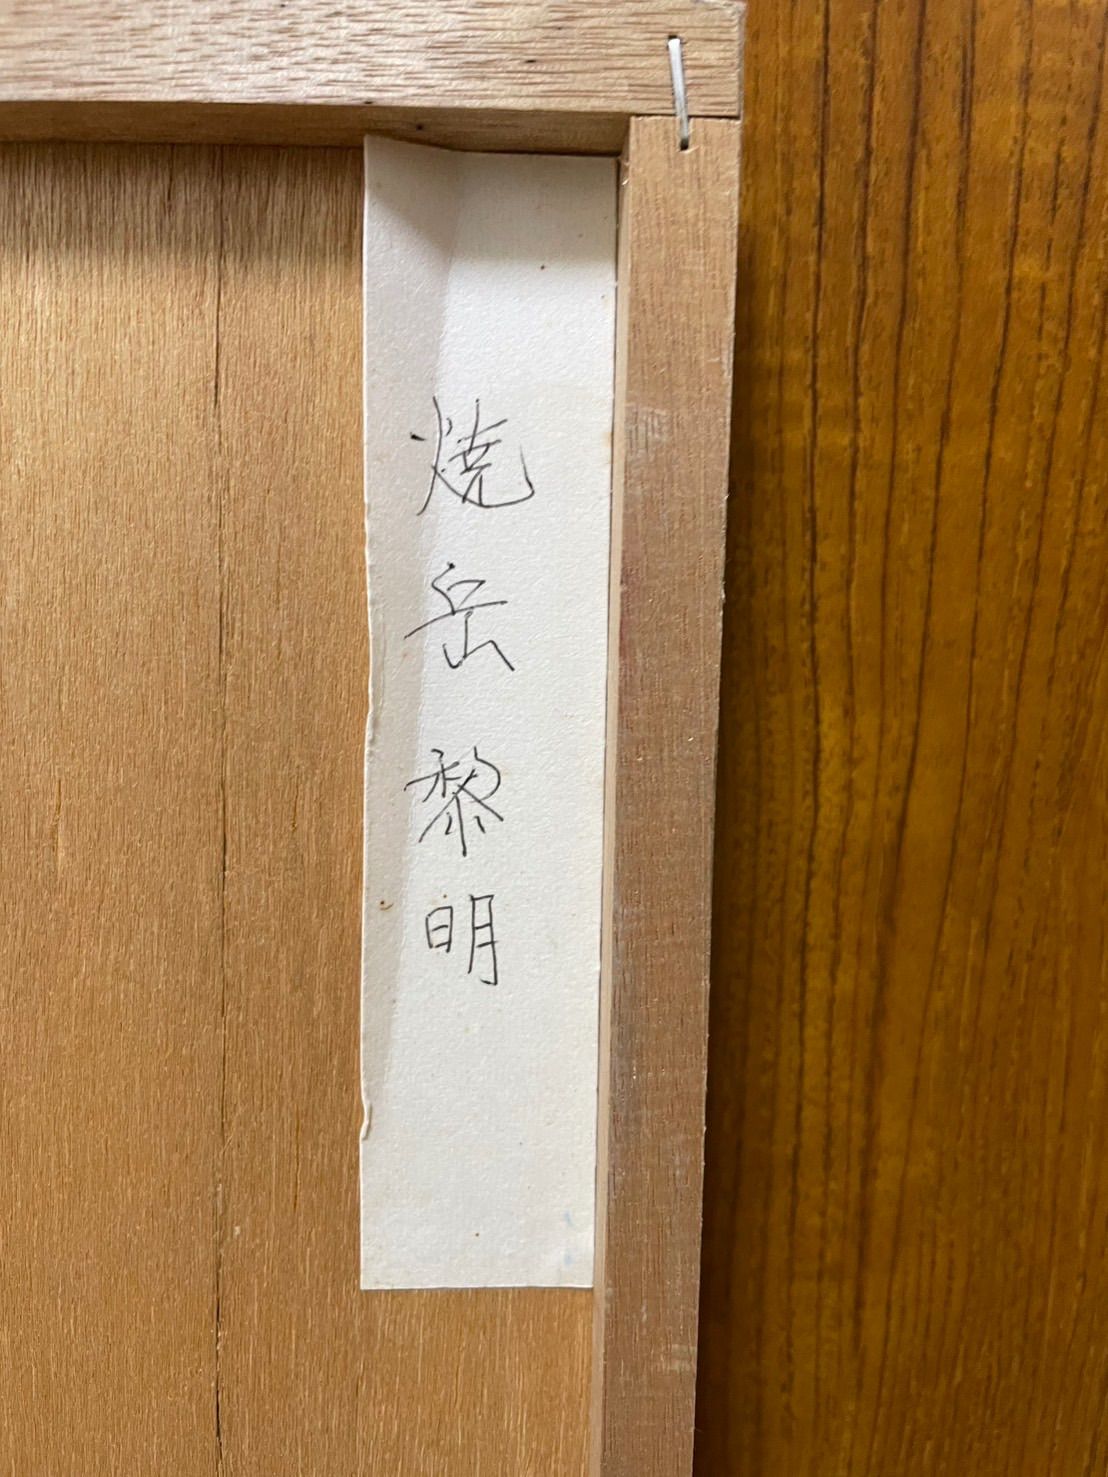 焼岳黎明